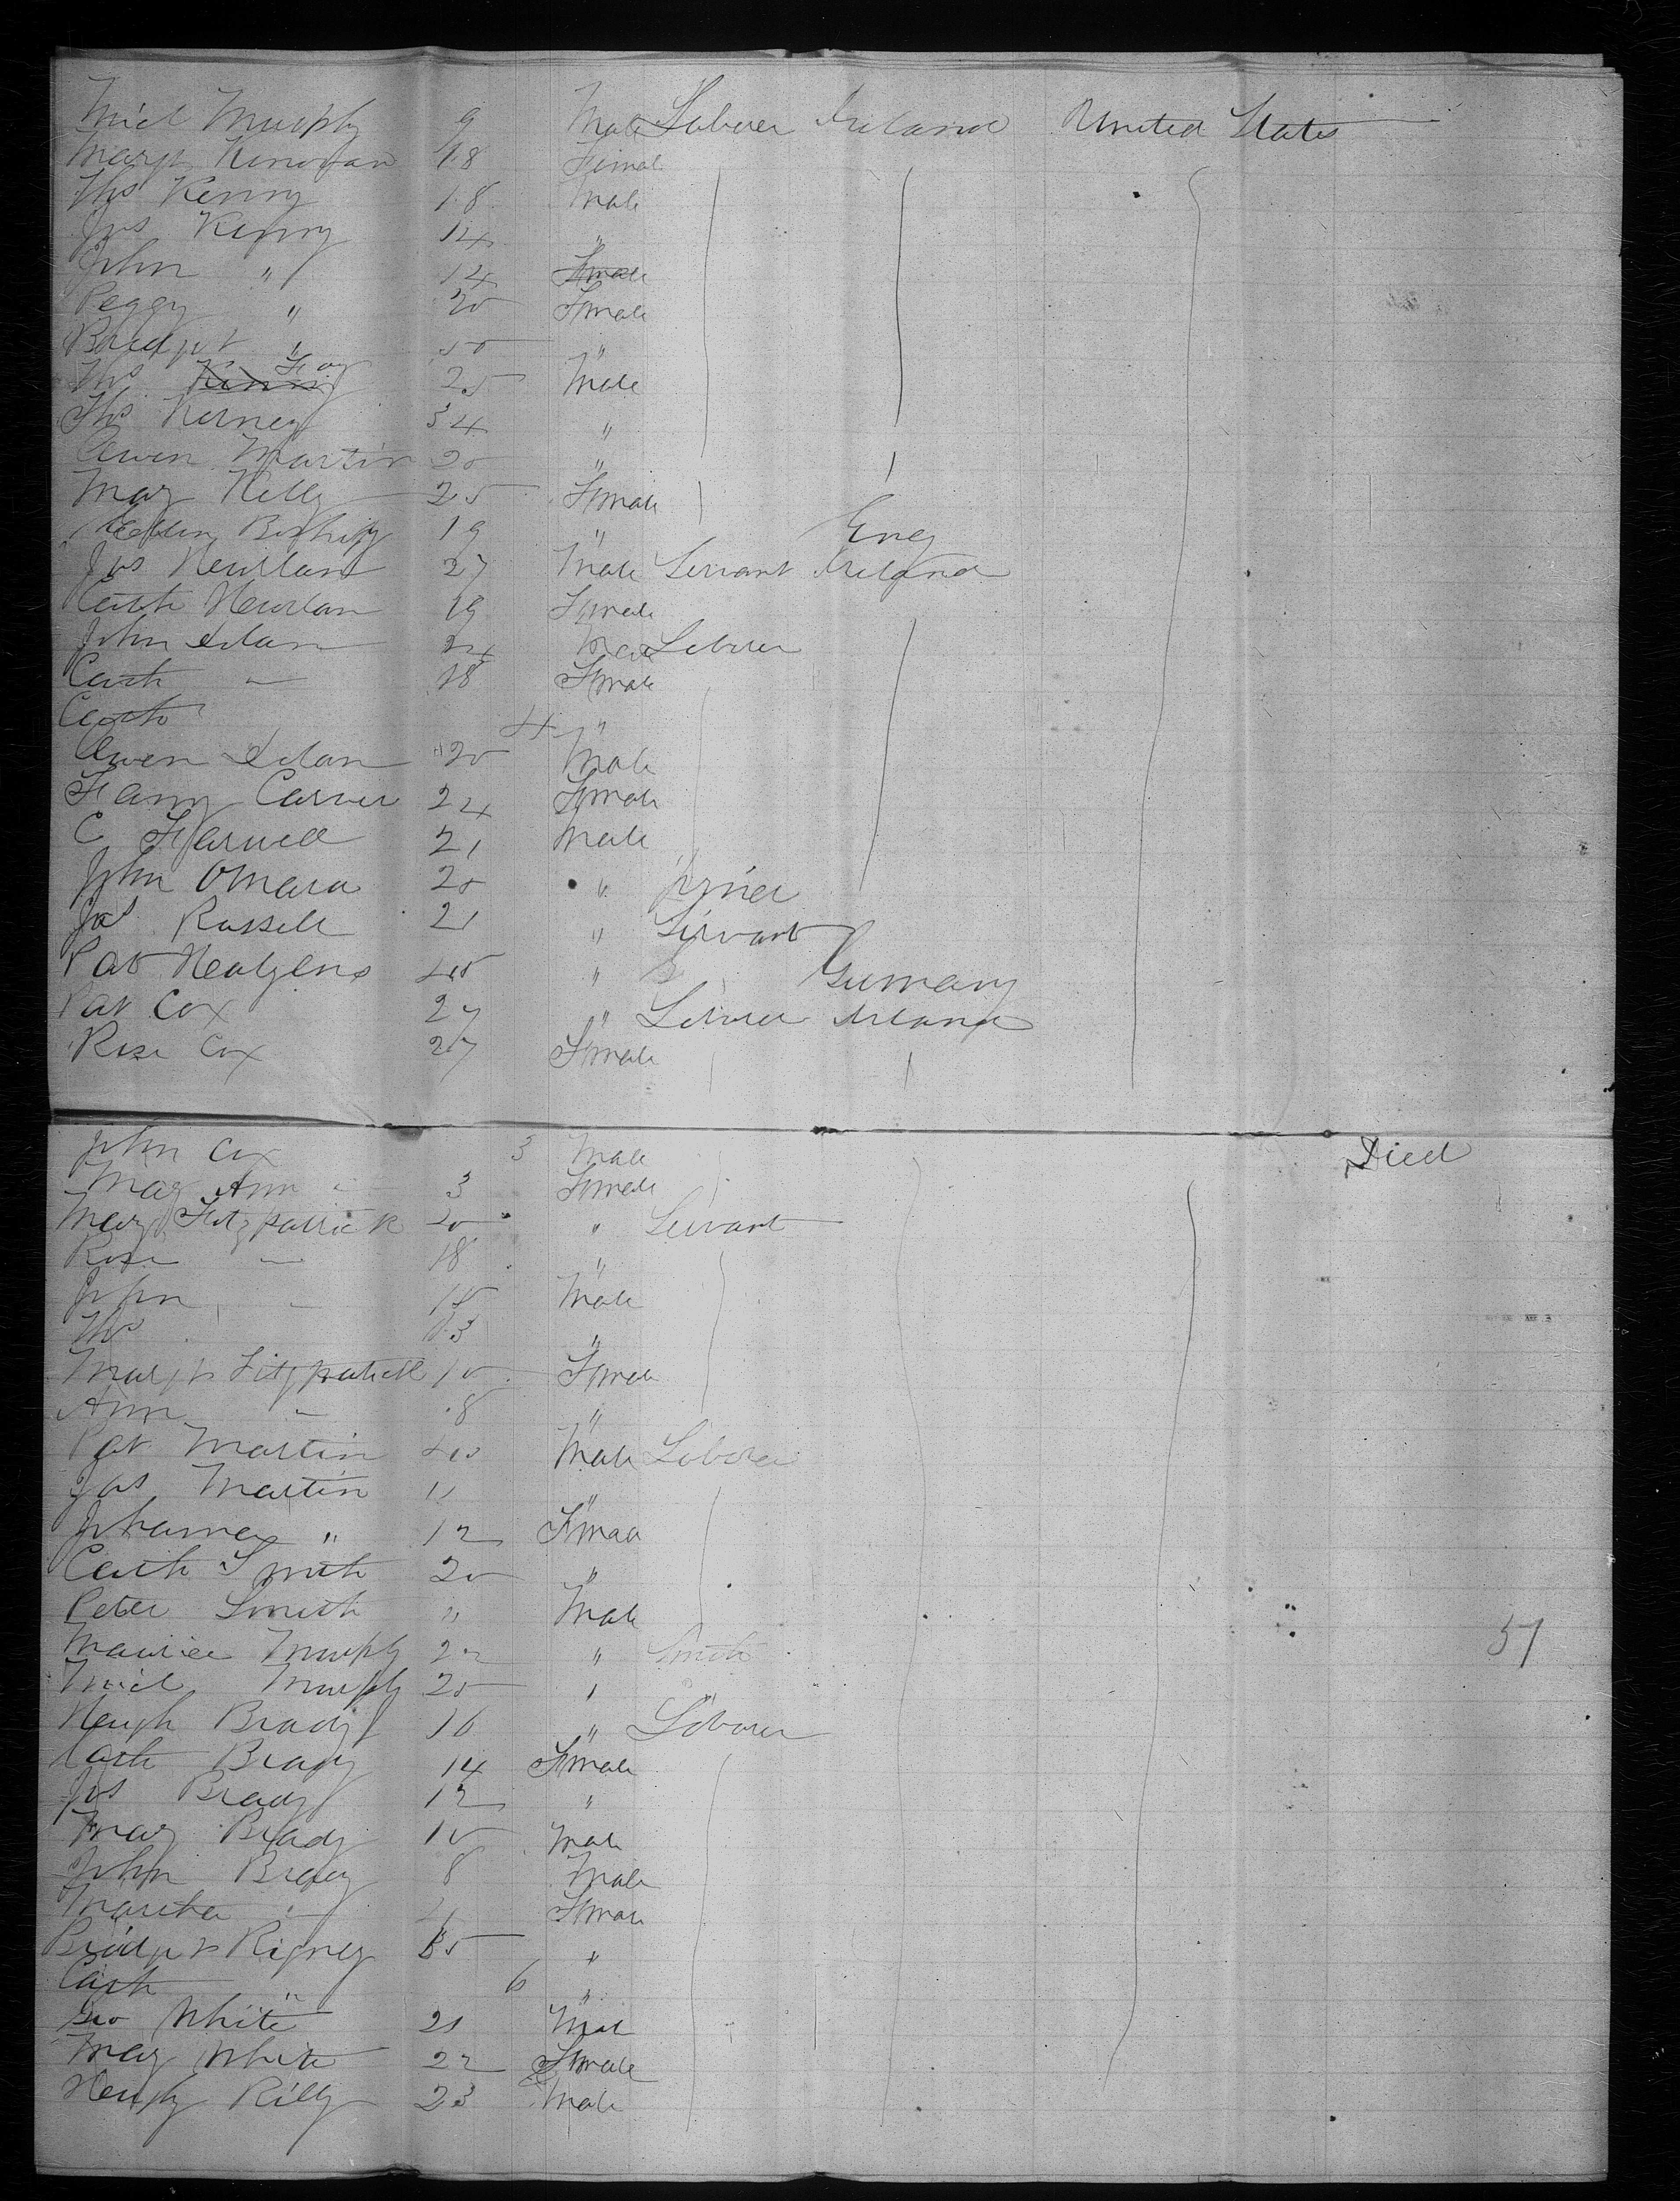 Mich Murphy 9 Male Laborer Ireland United States
Mary Kenovan 18 Female
Ths Kenny 18 Male
Jas Kenny 14 "
John " 14 Female
Peggy " 20 Female
Bridget " 50 "
Ths Kenny Feay 25 Male
Ths Kerney 34 "
Owen Martin 20 "
Mary Kelly 25 Female
Ellen 19 " Eng
Jas Newlan 27 Male Servant Ireland
Cath Newlan 19 Female
John Dolan 24 Male Laborer
Cath " 18 Female
Cath 4 "
Owen Dolan 20 Male
Fanny Carver 24 Female
C Farwell 21 Male
John OMara 20 "
Jas Russell 21 " Servant
Pat 45 " Germany
Pat Cox 27 " Laborer Ireland
Rose Cox 27 Female
John Cox 3 Male Died
Mary Ann " 3 Female
Mary Fitzpatrick 20 " Servant
Rose " 18 "
John " 15 Male
Ths 13 "
Margt Fitzpatrick 10 Female
Ann " 8 "
Pat Martin 40 Male Laborer
Jas Martin 11 "
Johanna " 12 Female
Cath Smith 20 "
Peter Smith " Male
Maurice Murphy 22 " Smith 57
Mich Murphy 20 "
Hugh Brady 16 " Laborer
Cath Brady 14 Female
Jas Brady 12 "
Mary Brady 10 Male
John Brady 8 Male
Martha " 4 Female
Bridget Rigney 35 "
Cath " 6 "
Geo White 21 Male
Mary White 22 Female
Henry Rilly 23 Male